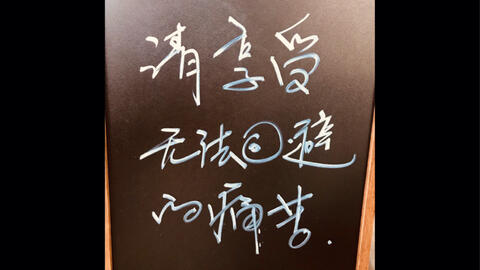 请享受
无法回避
的痛苦.